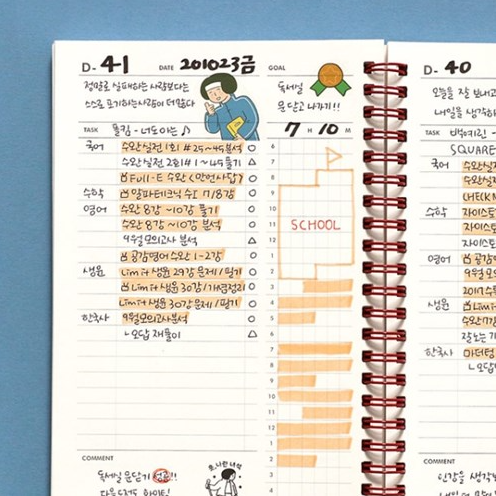 D- 41 DATE 201023금
GOAL
정말로 실패하는 사람보다는
스스로 포기하는사람이 더 많다
독서실
문 닫고 나가기!!
TASK 폴킴 - 너도아는 ♪
7 H 10 M
국어 수완실전 1회 #25~45분석 ○
수완실전 2회 #1~45풀기 △
Full-E 수완 ○
수학 알파테크닉 수Ⅱ 7/8강 ○
영어 수완 8강~10강 풀기 ○
수완 8강~10강 분석 ○
9월모의고사 분석 △
공감영어수완 1강 ○
생윤 limit 생윤 29강 문제/필기 ○
limit 생윤 30강 ○
limit 생윤 30강 문제/필기 ○
한국사 9월모의고사분석 ○
ㄴ오답 재풀이 △
6
7
8
9
10
11
12
1
2
3
4
5
6
7
8
9
10
11
12
1
2
SCHOOL
COMMENT
독서실 문닫기 성공!!
D- 40
오늘을 잘 보내고
내일을
TASK 백예린 -
SQUARE
국어 수완실
수완실
CHECK
수학 자이스토
자이스
자이스토
영어 공감영
9월모
2017수
생윤 Lim
수완
한국사 마더텅
ㄴ오답
COMMENT
인강을
내일